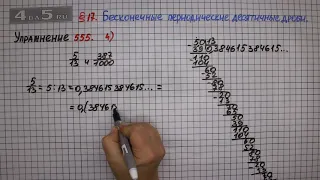 4DS.RU
§ 17. Бесконечные периодические десятичные дроби.
Упражнение 555. 4)
5/13 и 387/1000
5/13 = 5:13 = 0,384615384615... =
= 0,(38461
50|13
39|0,384615384615...
110
104
60
52
80
78
20
13
70
65
50
39
110
104
60
52
80
78
20